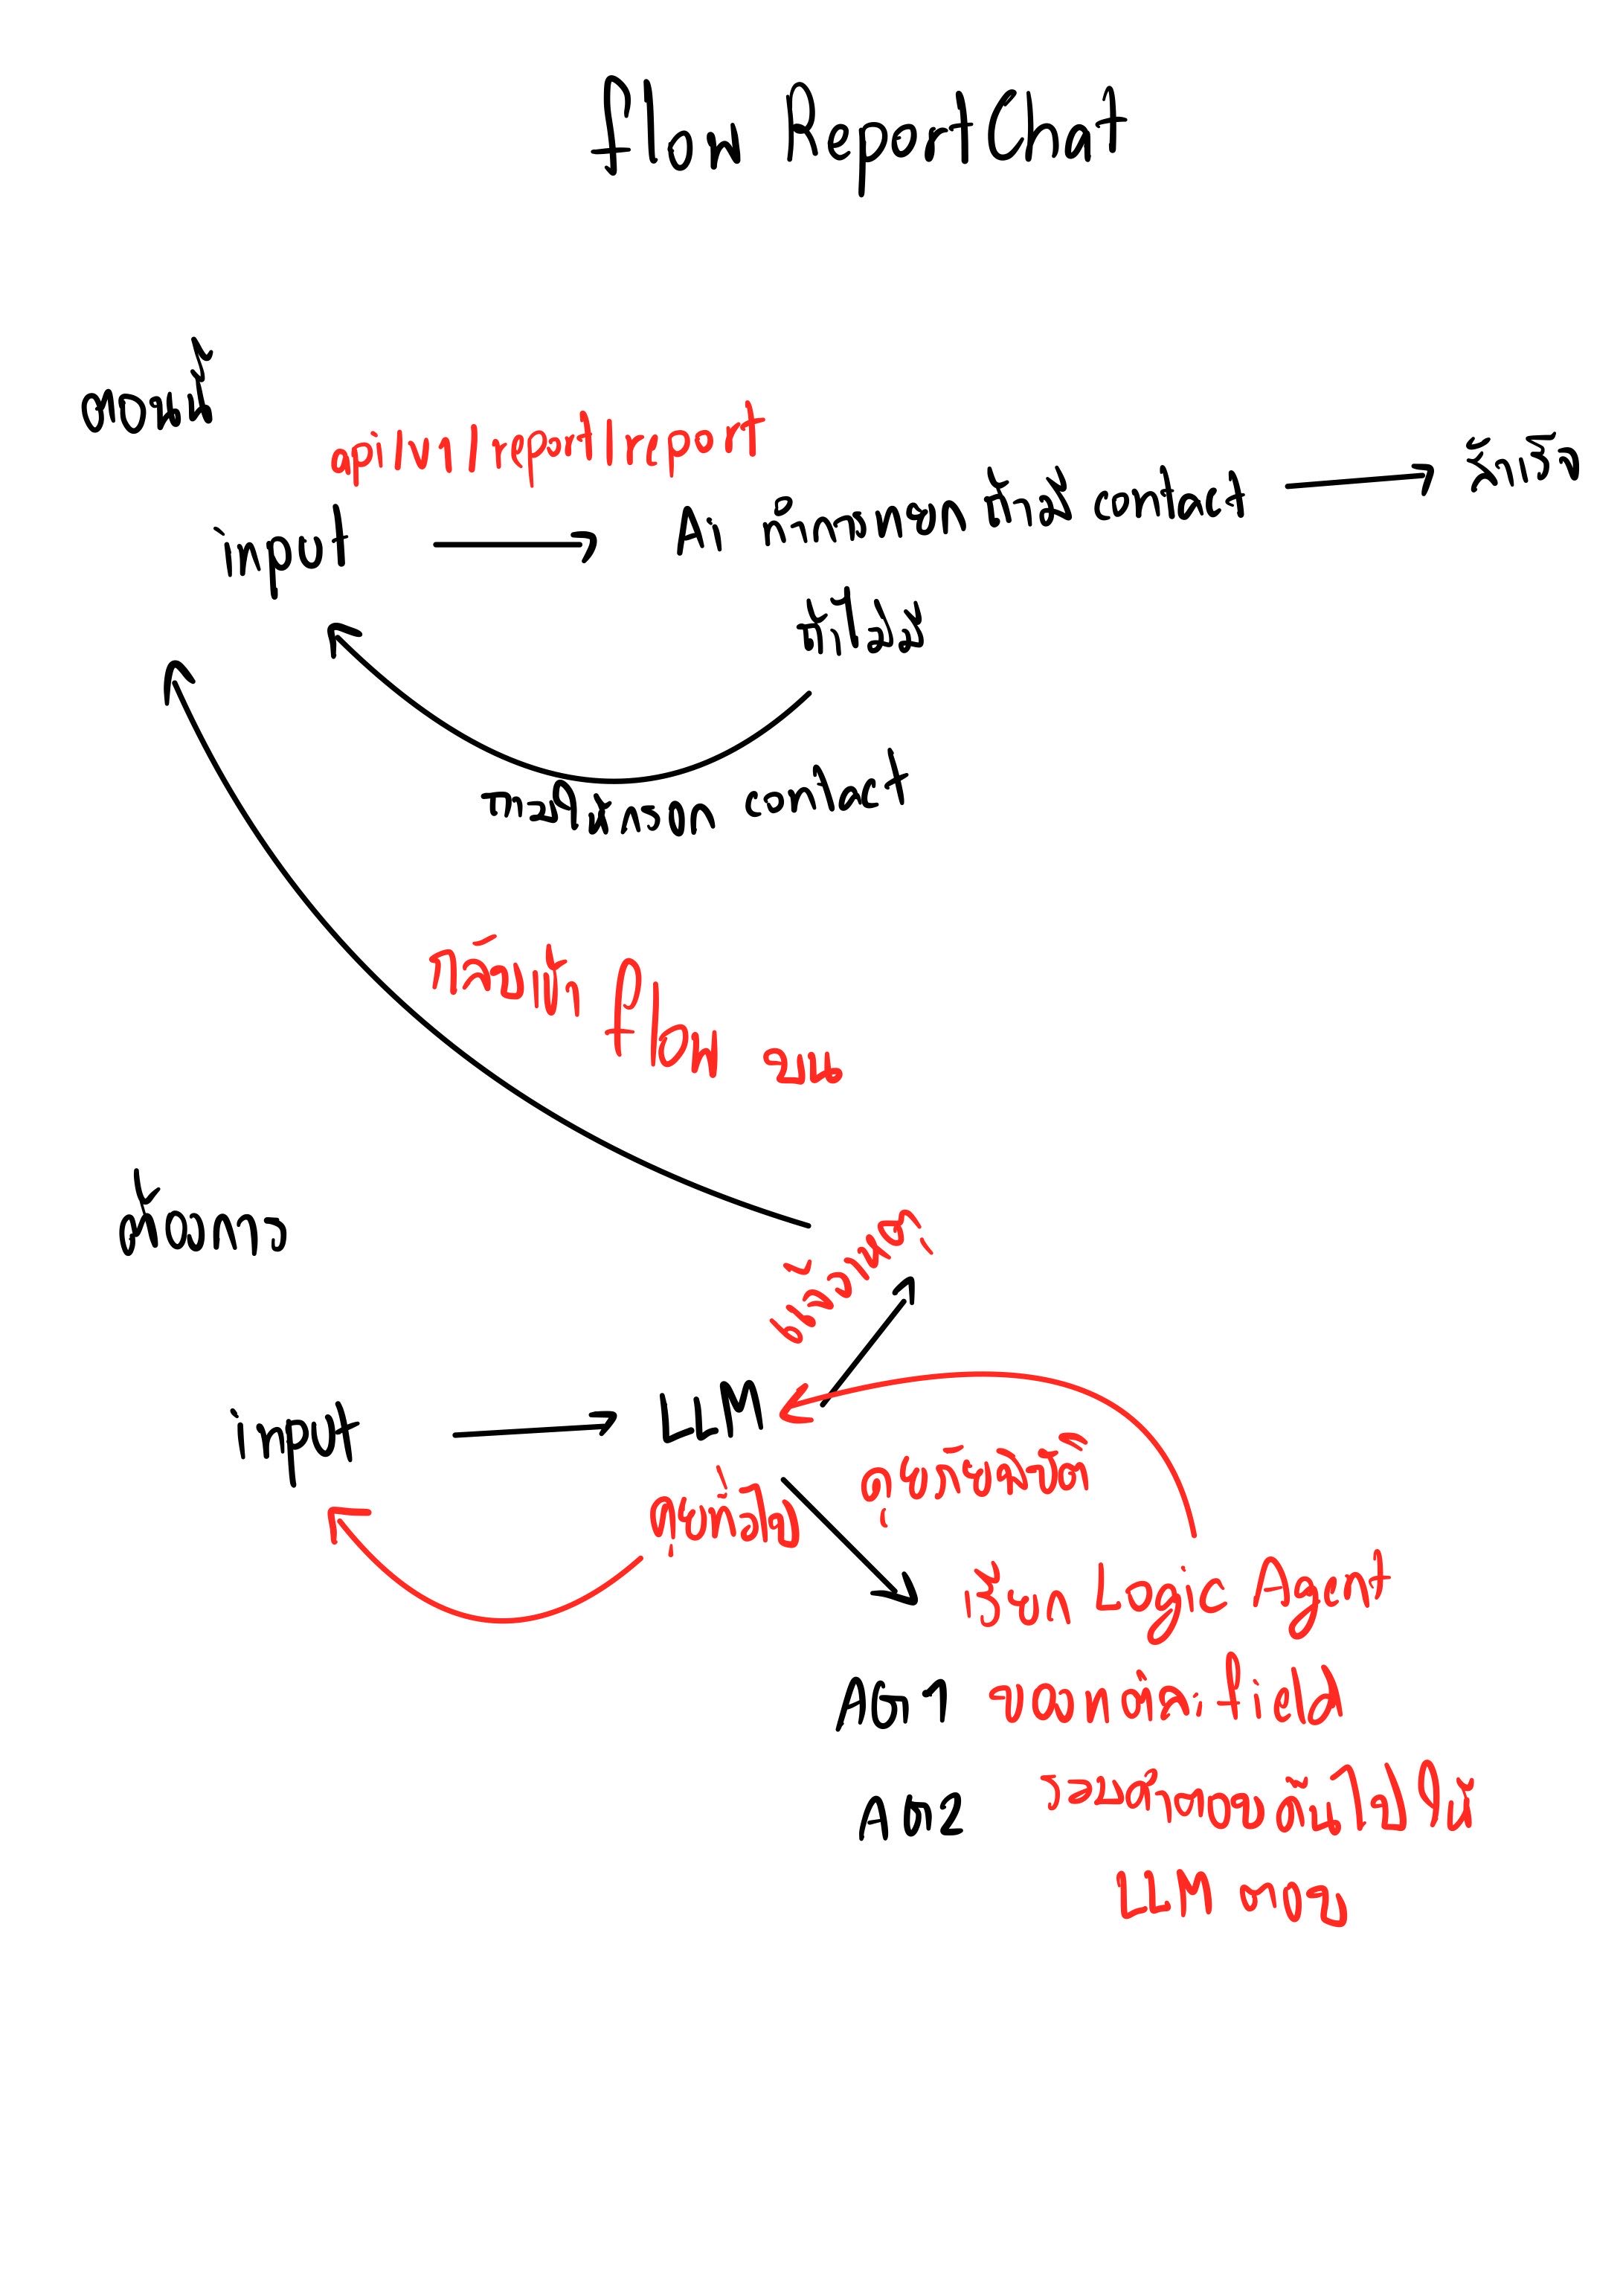 flow ReportChat
ตอนนี้
api/v1/report/report
input
Ai ทำการแยก ถ้ามี contact
สำเร็จ
ถ้าไม่มี
ถามให้กรอก contact
กลับเข้า flow บน
ต้องการ
แจ้งเหตุ
input
LLM
คุยภัยพิบัติ
คุยทั่วไป
เรียก Logic Agent
ของแต่ละ field
รวมคำตอบกันไปให้
LLM ตอบ